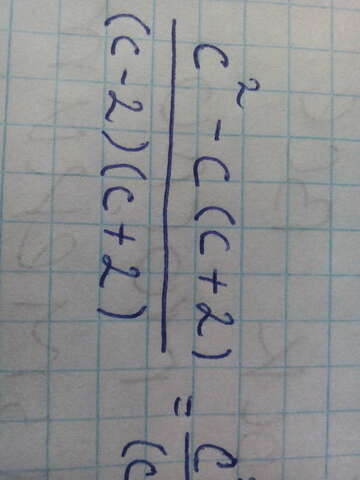 c² - c(c+2)
(c-2)(c+2)
=